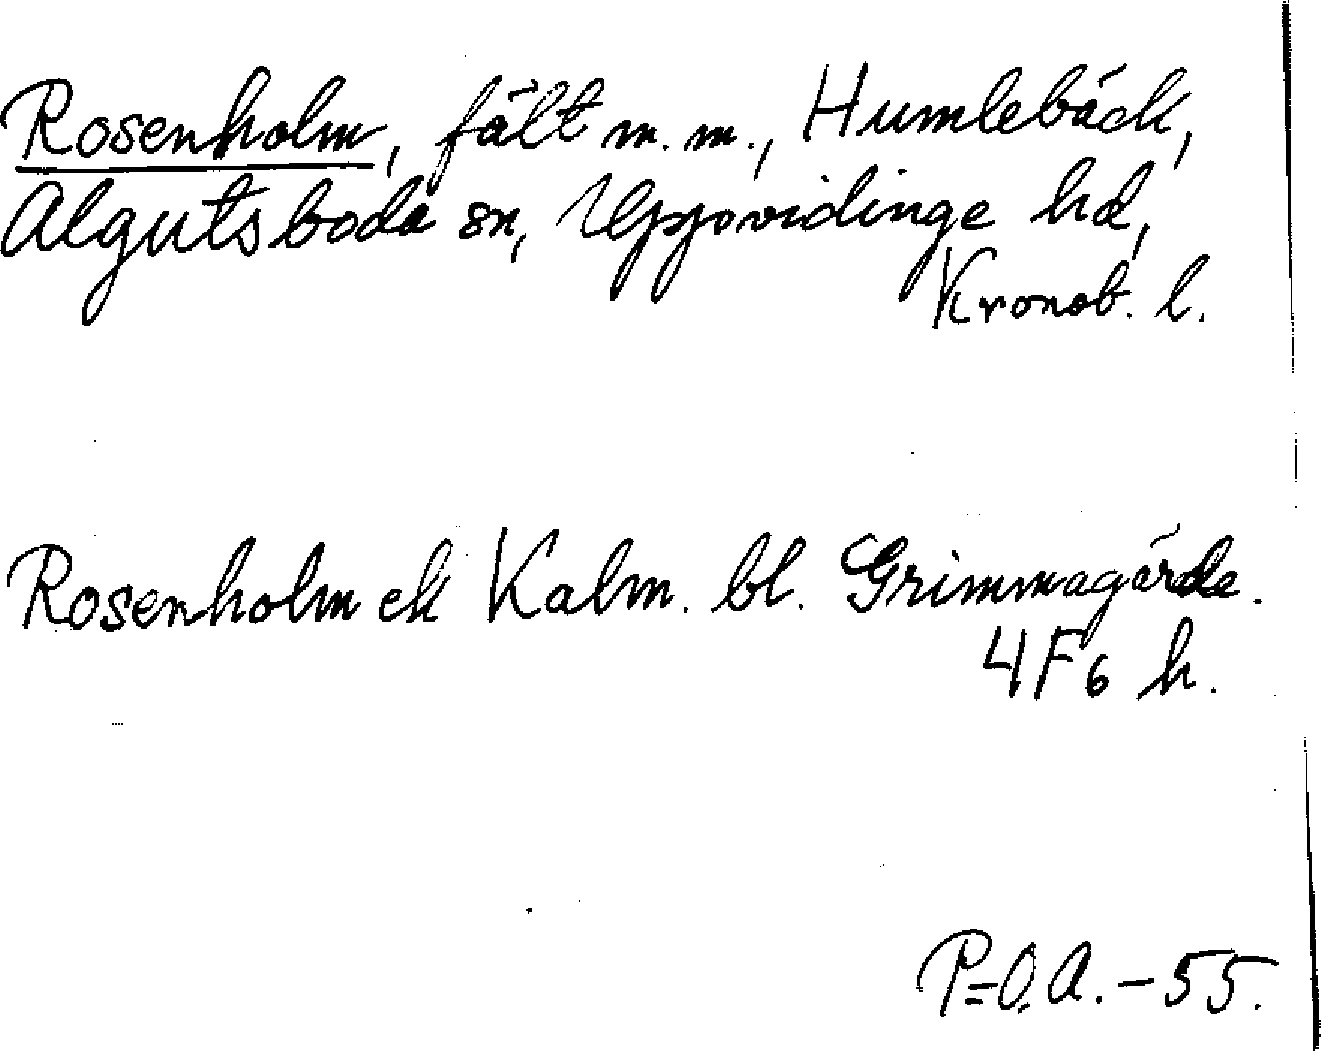 Rosenholm, fält m.m., Humlebäck,
Algutsboda sn, Uppvidinge hd,
Kronob. l.
Rosenholm ek Kalm. bl. Grimmagärde.
4F6 h.
P=O.A.-55.